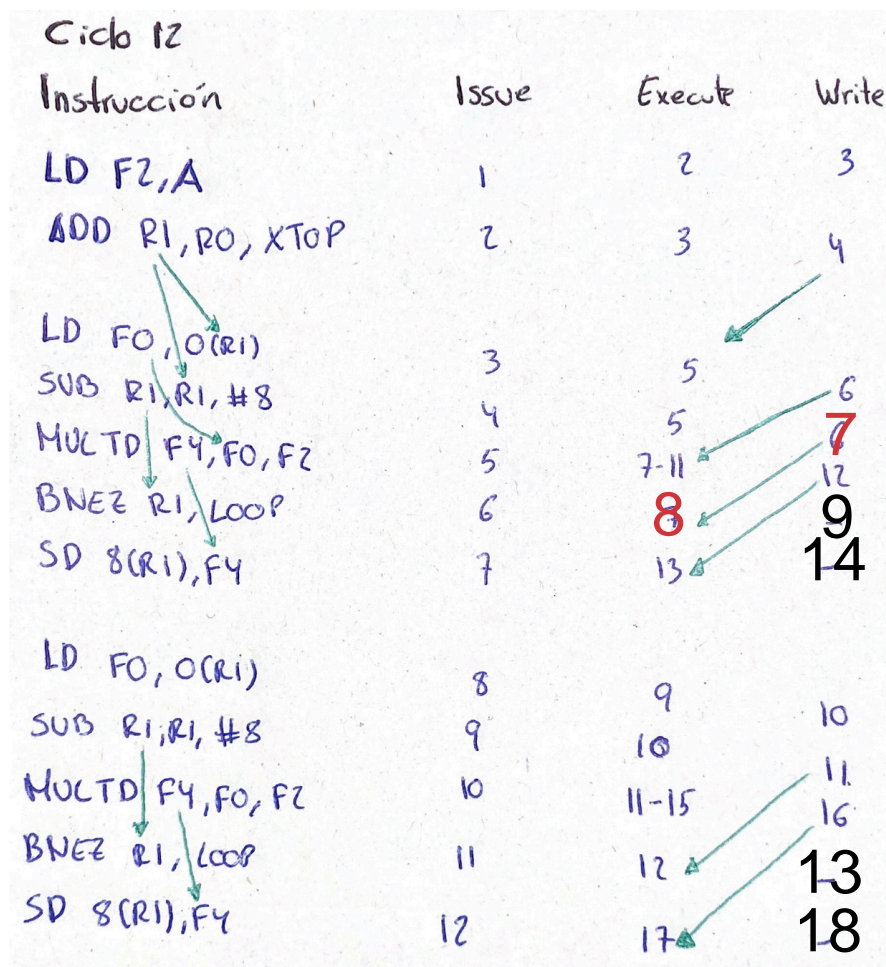 Ciclo 12
Instrucción Issue Execute Write
LD F2,A 1 2 3
ADD R1,R0,XTOP 2 3 4
LD F0,0(R1) 3 5 6
SUB R1,R1,#8 4 5 7
MULTD F4,F0,F2 5 7-11 12
BNEZ R1,LOOP 6 8 9
SD 8(R1),F4 7 13 14
LD F0,0(R1) 8 9 10
SUB R1,R1,#8 9 10 11
MULTD F4,F0,F2 10 11-15 16
BNEZ R1,LOOP 11 12 13
SD 8(R1),F4 12 17 18